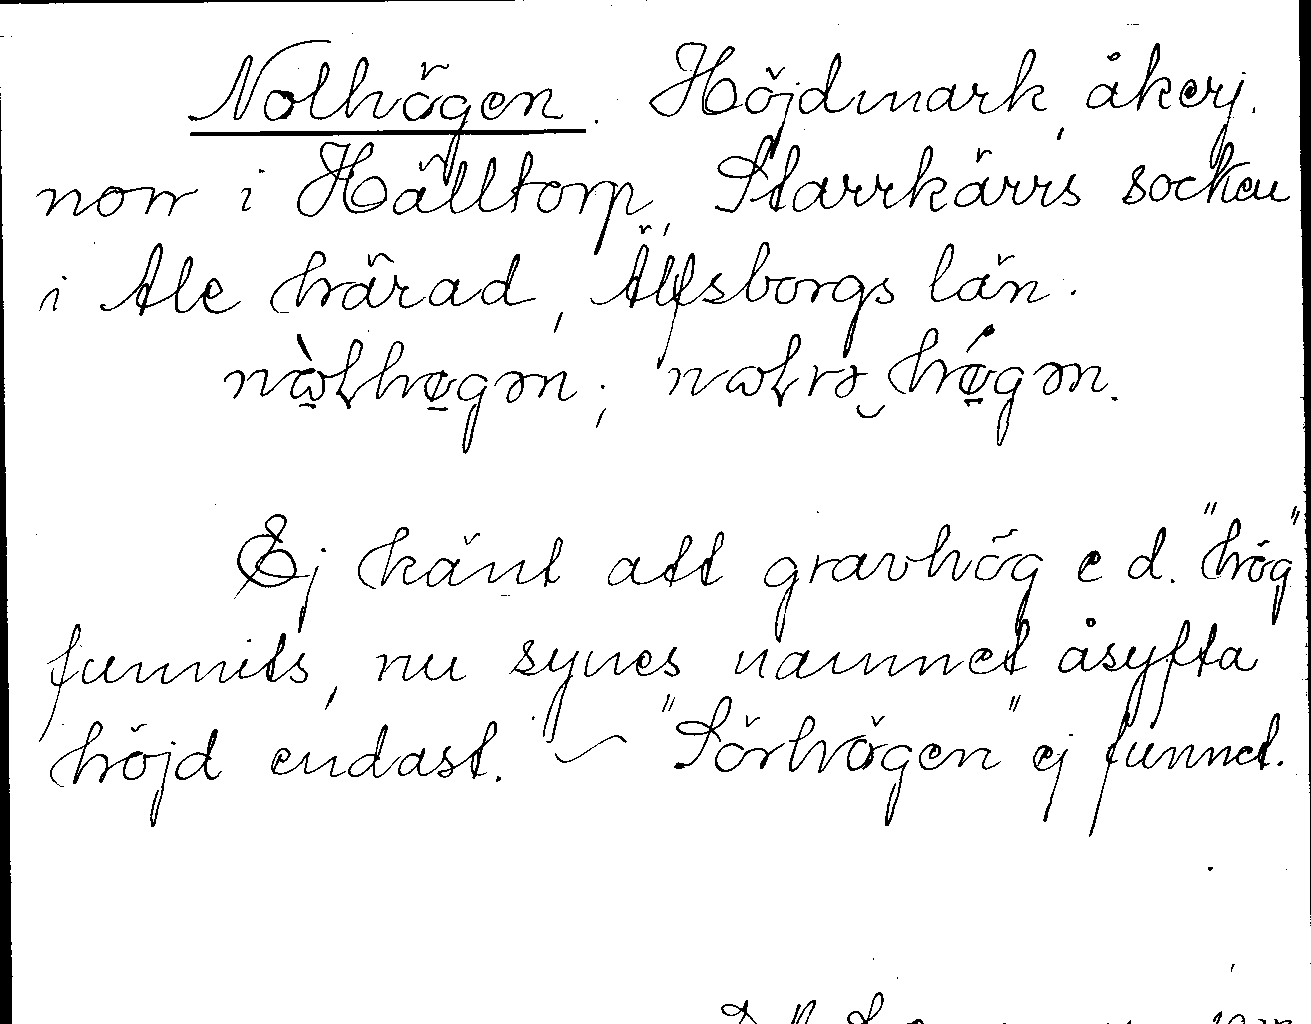 Nolhögen. Höjdmark, åkerj.
norr i Hälltorp, Starrkärrs socken
i Ale härad, Älfsborgs län.
nòlhøgən; nolrə høgən.
Ej känt att gravhög e d. "hög"
funnits, nu synes namnet åsyfta
höjd endast. ~ "Sörhögen" ej funnet.